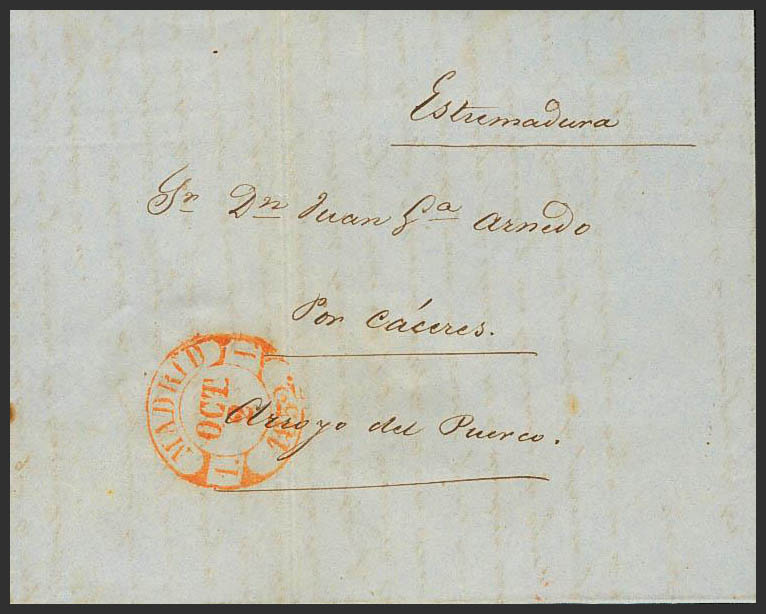 Estremadura
Sr Dn Juan Ga Arnedo
Por Cáceres.
Arroyo del Puerco.
MADRID
OCT